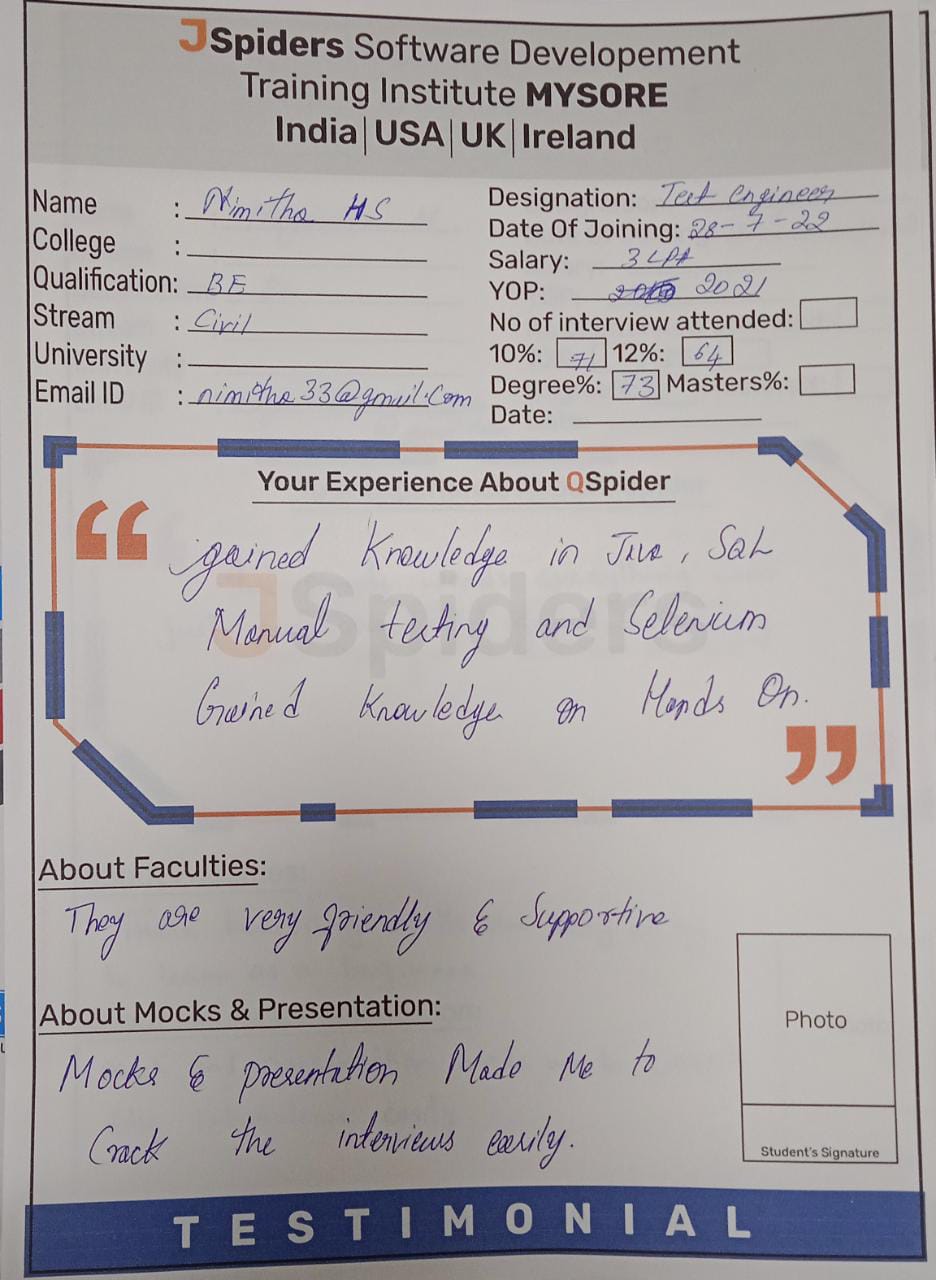 JSpiders Software Developement
Training Institute MYSORE
India|USA|UK|Ireland
Name : Nimitha HS
College :
Qualification: BE
Stream : Civil
University :
Email ID : nimitha33@gmail.com
Designation: Test Engineer
Date Of Joining: 28-7-22
Salary: 3 LPA
YOP: 2021
No of interview attended:
10%: 71 12%: 64
Degree%: 73 Masters%:
Date:
Your Experience About QSpider
“
gained Knowledge in Java, SQL
JSpiders
Manual testing and Selenium
Gained Knowledge on Hands On.
”
About Faculties:
They are very friendly & Supportive
About Mocks & Presentation:
Mocks & presentation Made Me to
Crack the interviews easily.
Photo
Student's Signature
TESTIMONIAL